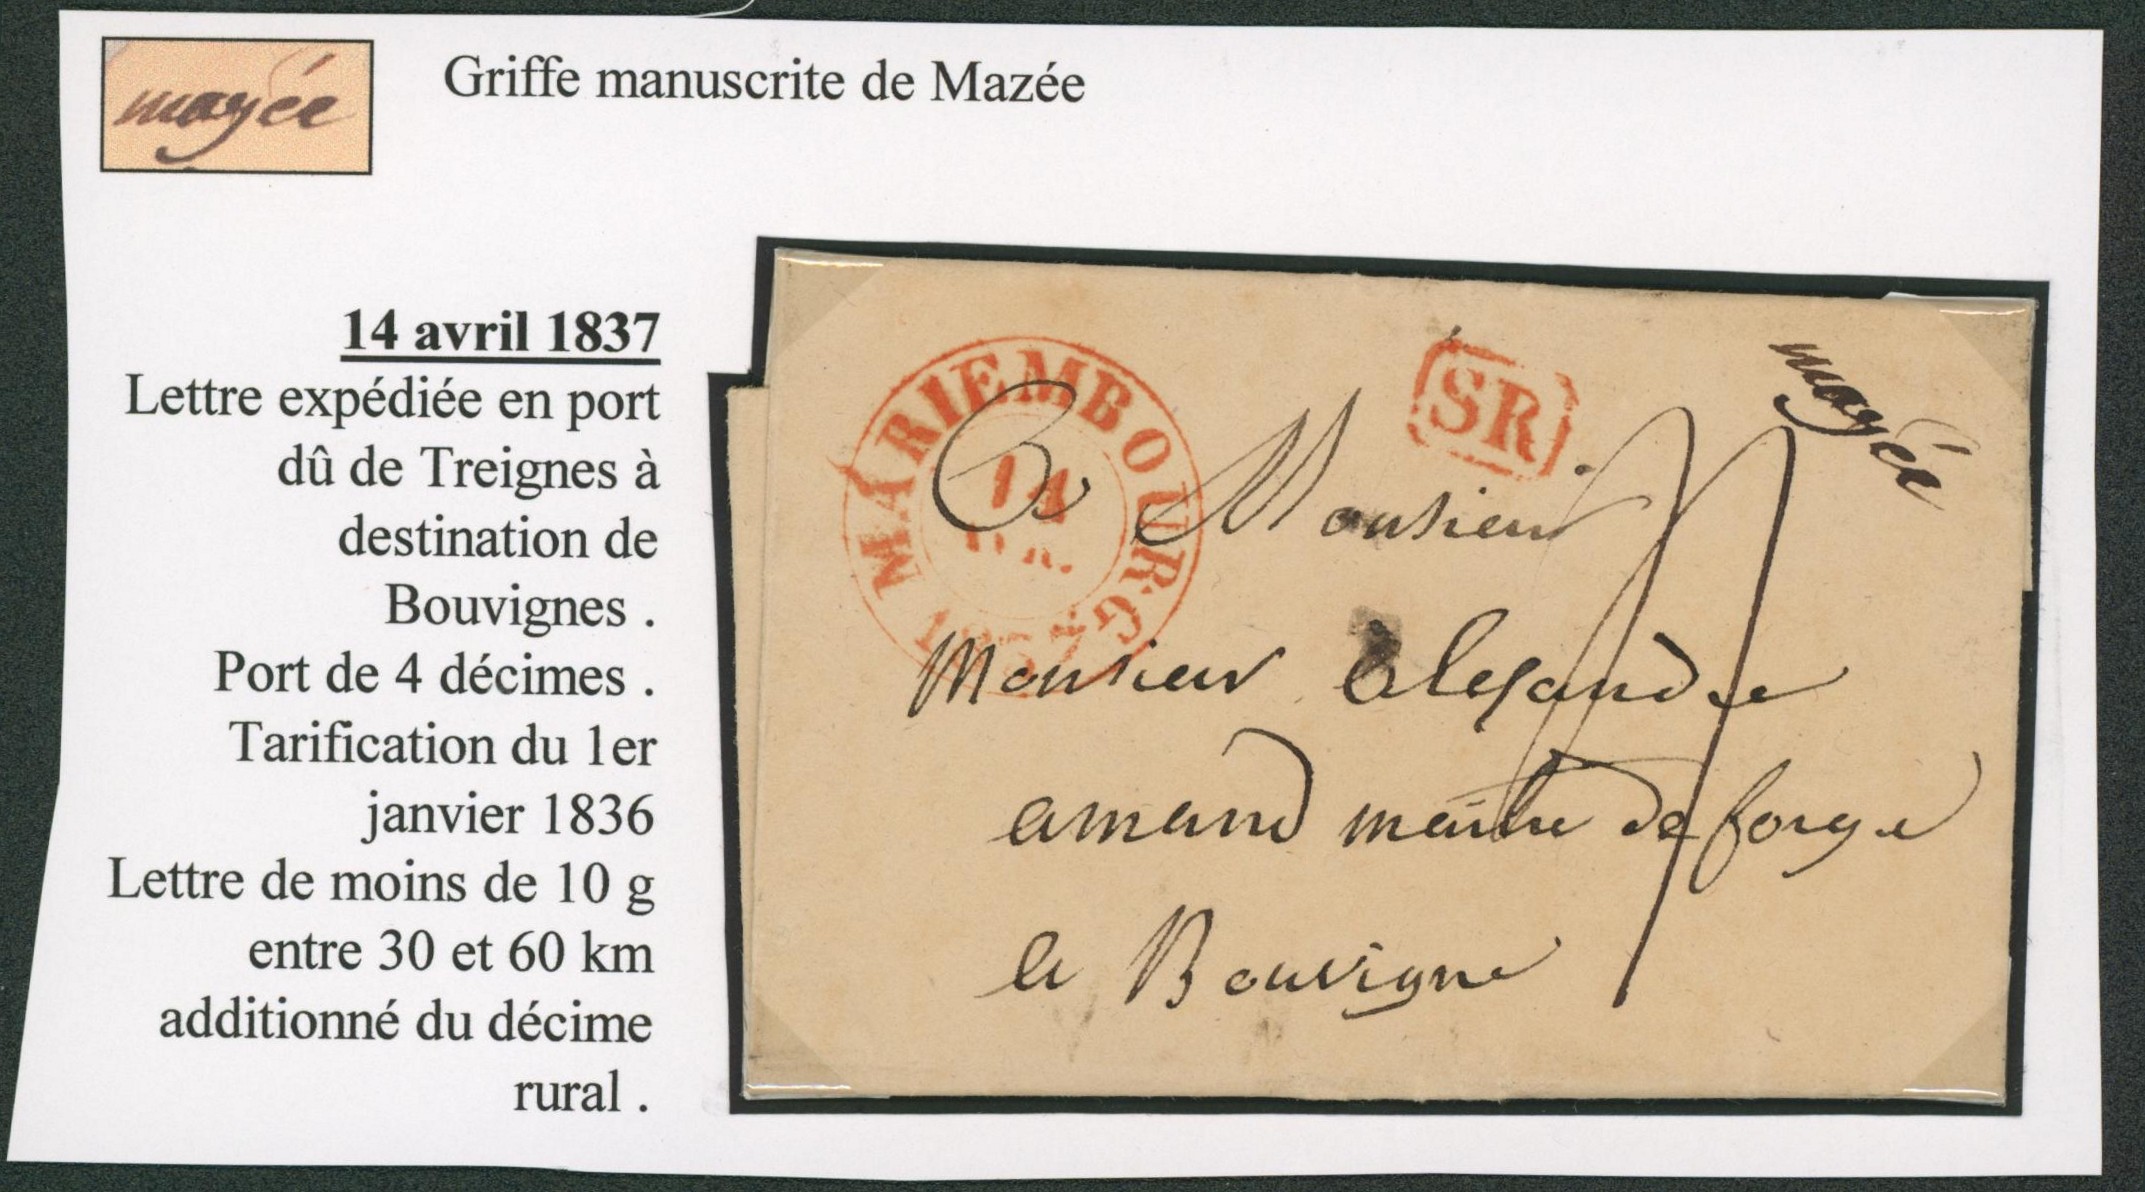 mazée
Griffe manuscrite de Mazée
14 avril 1837
Lettre expédiée en port
dû de Treignes à
destination de
Bouvignes .
Port de 4 décimes .
Tarification du 1er
janvier 1836
Lettre de moins de 10 g
entre 30 et 60 km
additionné du décime
rural .
MARIEMBOURG
14
1837
SR
mazée
A Monsieur
Monsieur Alexandre
amand maitre de forge
a Bouvigne